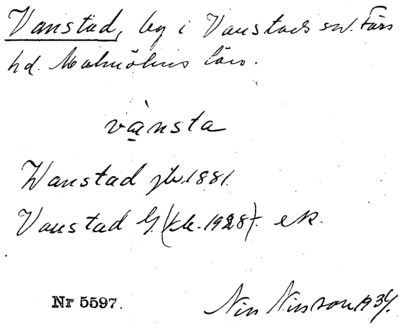 Vanstad, by i Vanstads sn. Färs
hd. Malmöhus län.
vànsta
Wanstad jb. 1881.
Vanstad G (kk. 1928). ek.
Nr 5597.
Nils Nilsson 1934.